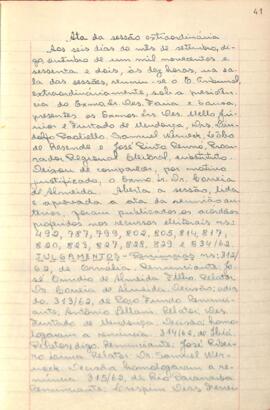 41
Ata da sessão extraordinária
Aos seis dias do mês de setembro, di-
go outubro de um mil novecentos e
sessenta e dois, às dez horas, na sa-
la das sessões, reuniu-se o Tribunal,
extraordinariamente, sob a presidên-
cia do Exmo. Sr. Des. Faria e Sousa,
presentes os Exmos. Srs. Des. Mello
e Furtado de Mendonça, Drs.
Samuel Werneck,
de Resende e José Pinto Renno, Procu-
rador Regional Eleitoral, substituto.
Deixou de comparecer, por motivo
justificado, o Exmo. Sr. Dr. Correia
de Almeida. Aberta a sessão, lida
e aprovada a ata da reunião an-
terior, foram publicados os acórdãos
proferidos nos recursos eleitorais nºs:
492, 787, 799, 802, 805, 814, 817,
820, 823, 827, 828, 829 e 834/62.
JULGAMENTOS - Renúncias nºs: 312/
62, de Renunciante: Jo-
sé de Almeida Filho. Relator:
Dr. Correia de Almeida. Decisão: adia-
da. 313/62, de Passo Fundo. Renunci-
ante: Antônio Relator: Des.
Furtado de Mendonça. Decisão: homo-
logaram a renúncia. 314/62, de
Relator, digo, Renunciante: José Ribei-
ro Relator: Dr. Samuel Wer-
neck. Decisão: homologaram a re-
núncia. 315/62, de Rio Paranaíba
Renunciante: Crispim